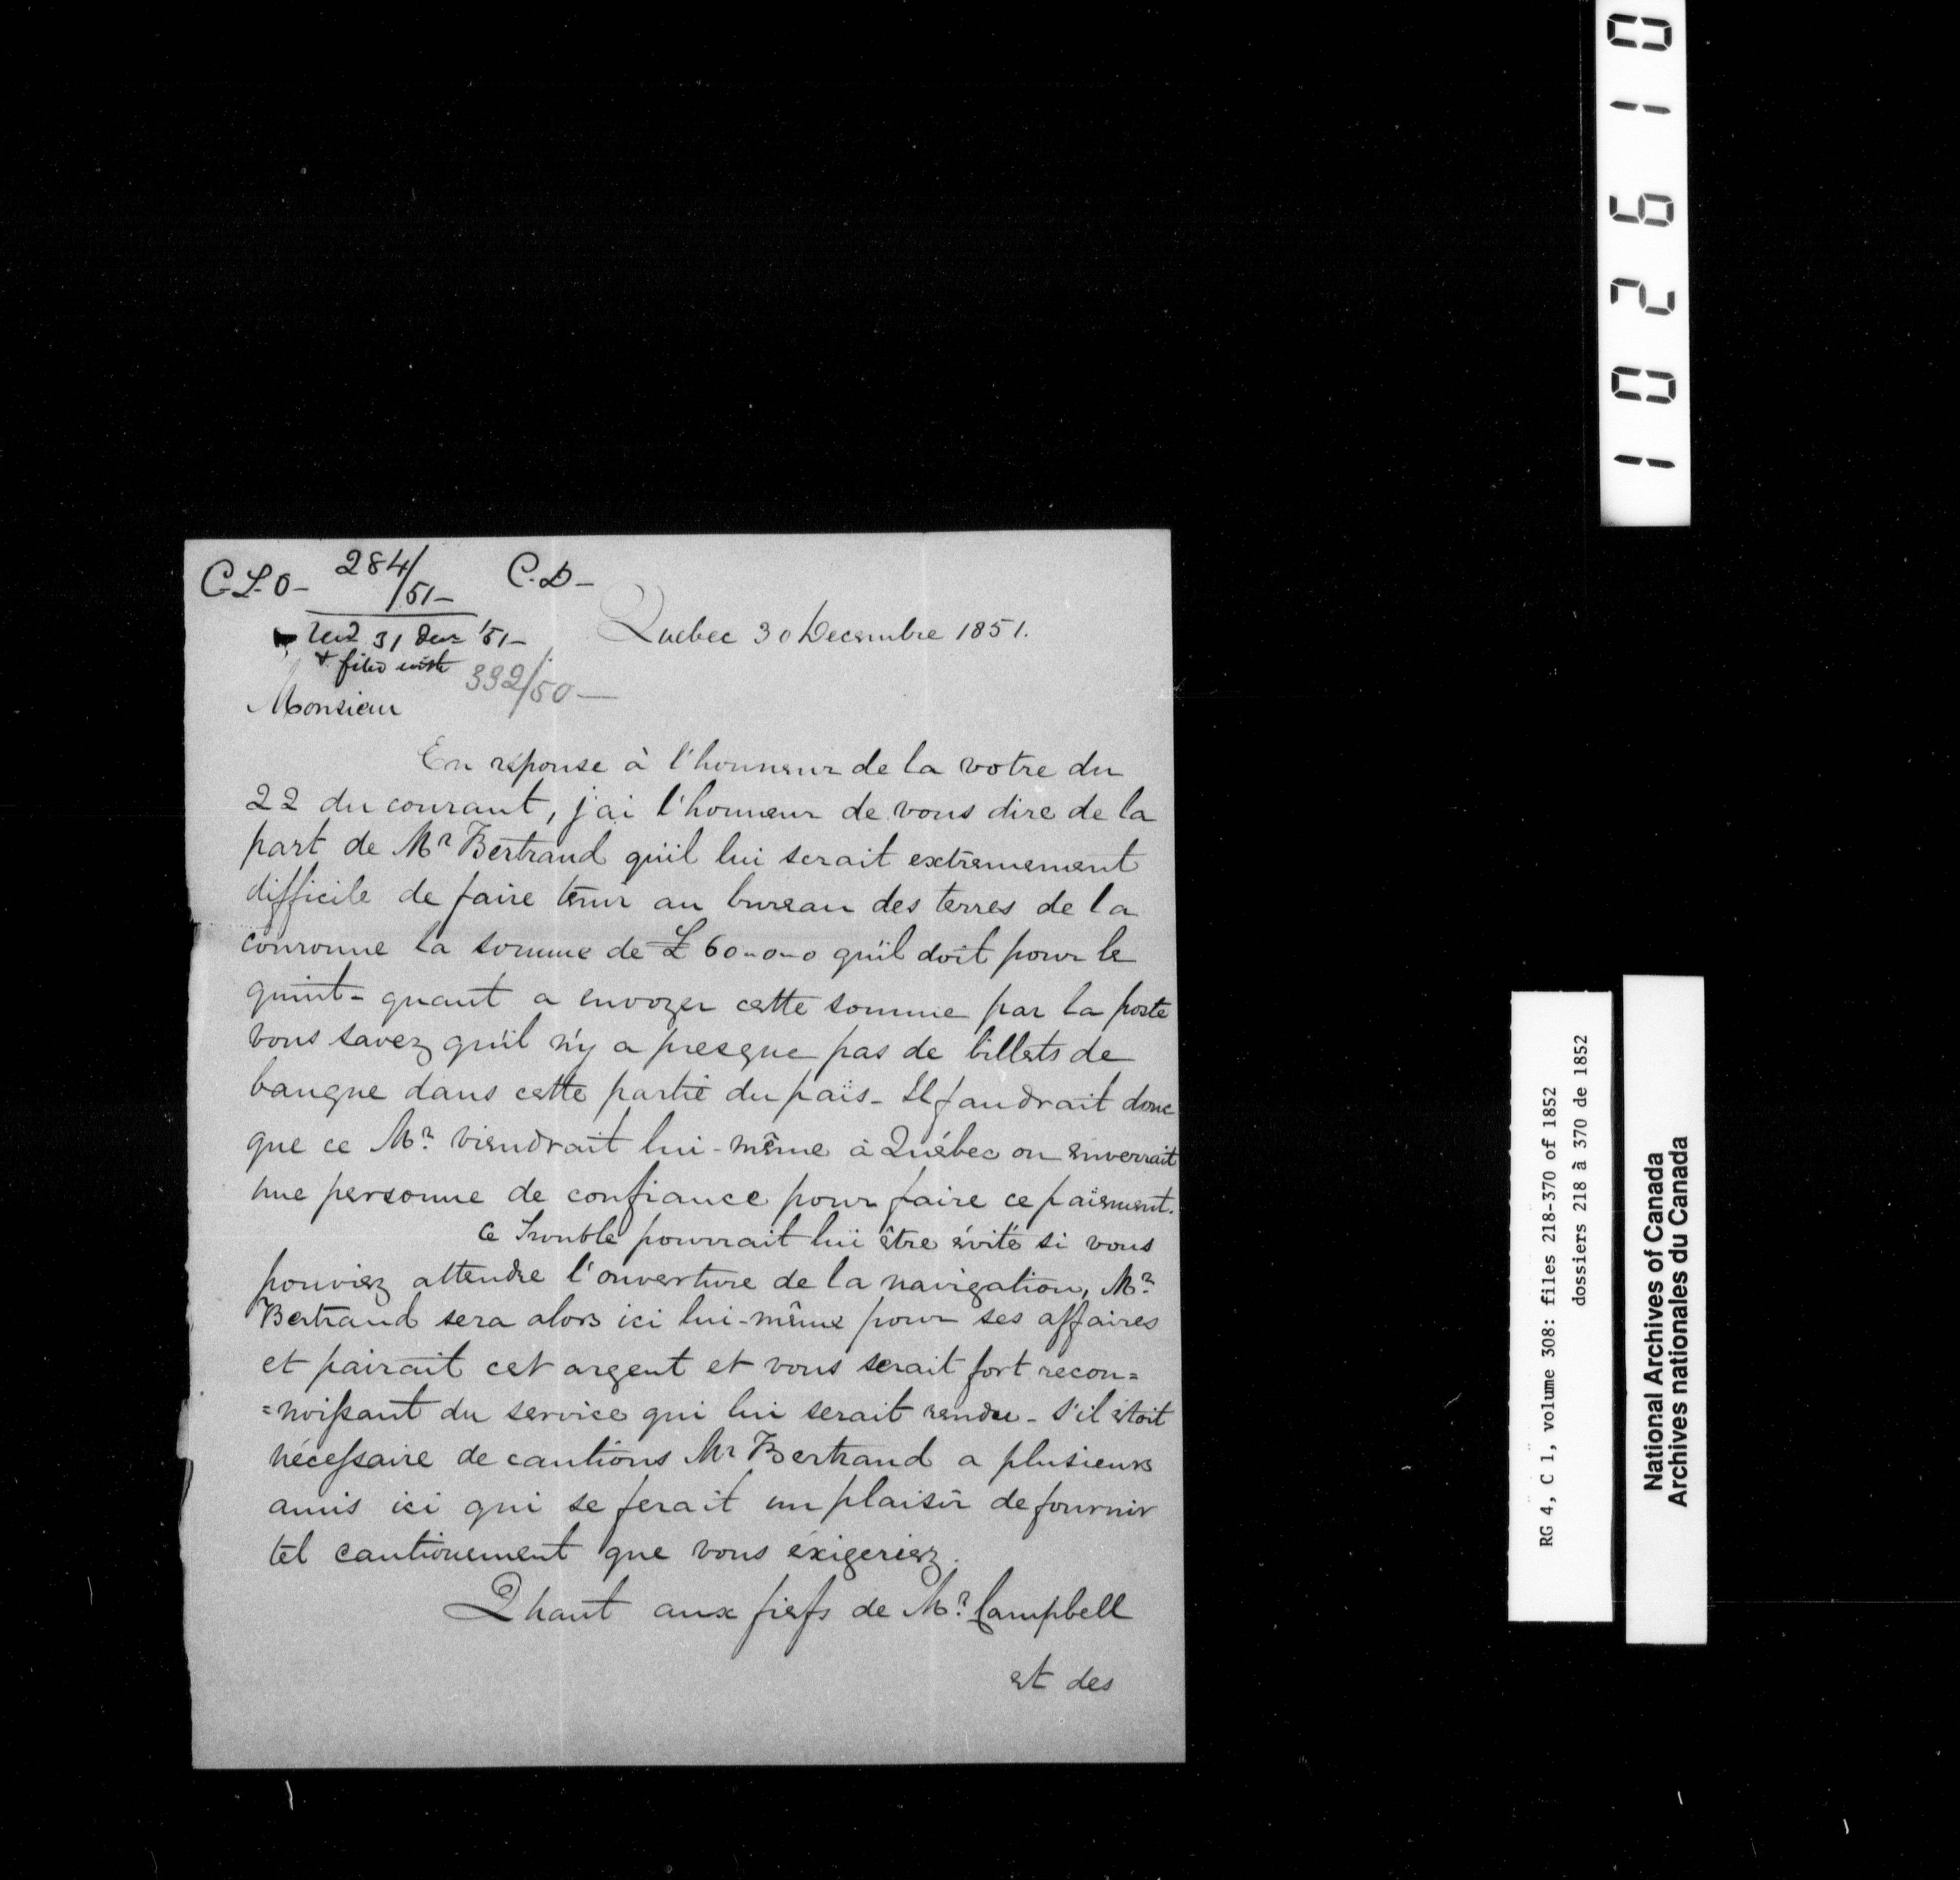 C.L.O- 284/51- C.D-
Recd 31 Decr '51-
& filed with 332/50-
Quebec 30 Decembre 1851.
Monsieur
En réponse à l'honneur de la votre du
22 du courant, j'ai l'honneur de vous dire de la
part de Mr Bertrand qu'il lui serait extrêmement
difficile de faire tenir au bureau des terres de la
couronne la somme de £ 60-0-0 qu'il doit pour le
quint- quant a envoyer cette somme par la poste
vous savez qu'il n'y a presque pas de billets de
banque dans cette partie du païs- Il faudrait donc
que ce Mr. viendrait lui-même à Québec ou enverrait
une personne de confiance pour faire ce païement.
Ce Trouble pourrait lui être évité si vous
pouviez attendre l'ouverture de la navigation, Mr.
Bertrand sera alors ici lui-même pour ses affaires
et pairait cet argent et vous serait fort recon=
=noissant du service qui lui serait rendu- S'il étoit
nécessaire de cautions Mr Bertrand a plusieurs
amis ici qui se ferait un plaisir de fournir
tel cautionement que vous éxigeriez.
Qhant aux fiefs de Mr. Campbell
et des
102610
RG 4, C 1, volume 308: files 218-370 of 1852
dossiers 218 à 370 de 1852
National Archives of Canada
Archives nationales du Canada